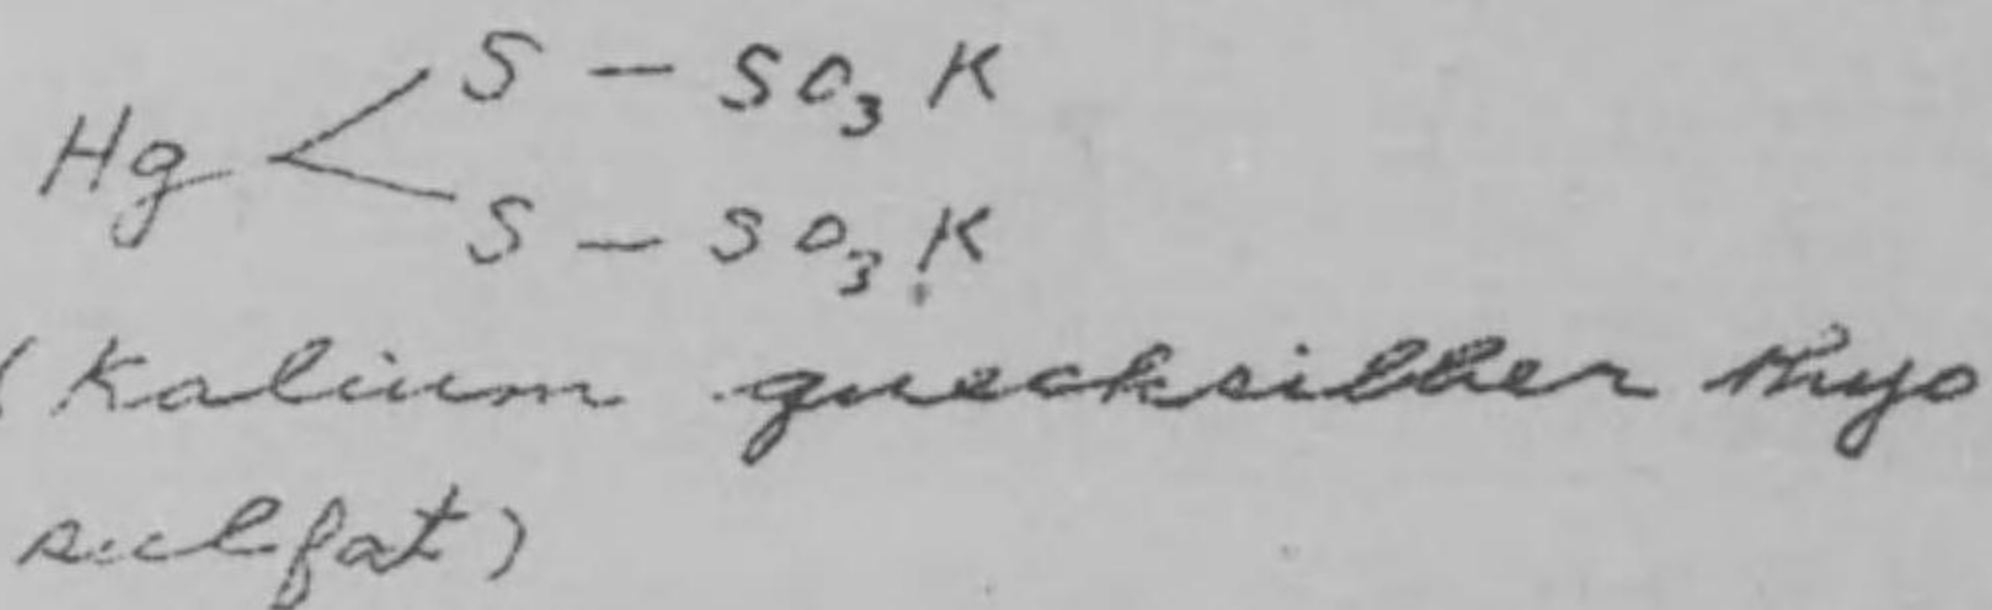 S – SO₃ K
Hg <
S – SO₃ K
(Kalium quecksilber thyo
sulfat)